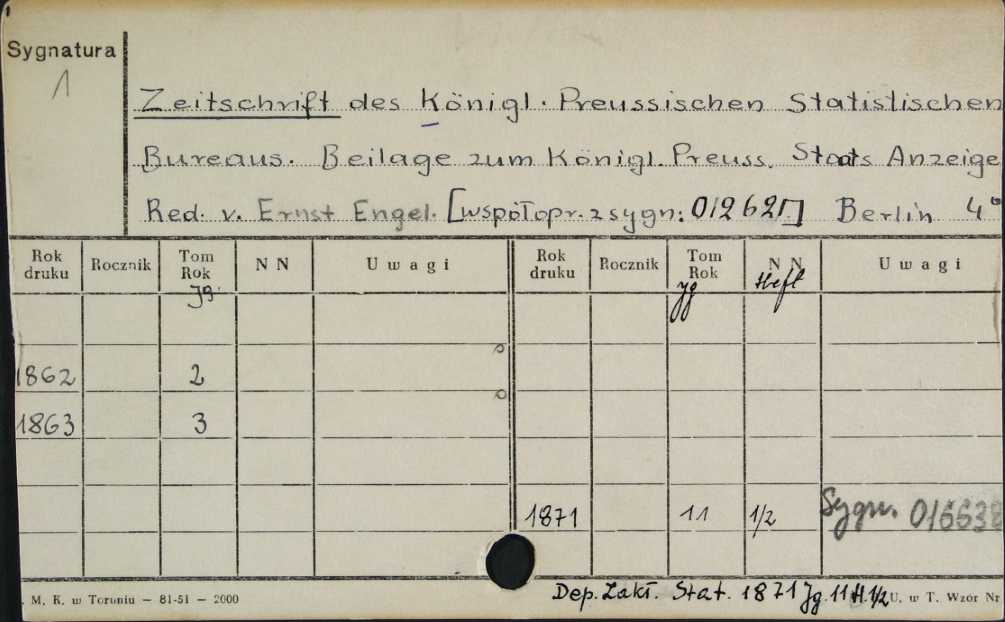 Sygnatura
1
Zeitschrift des Königl. Preussischen Statistischen
Bureaus. Beilage zum Königl. Preuss. Staats Anzeige
Red. v. Ernst Engel. [współopr. z sygn: 012621] Berlin 4°
Rok druku Rocznik Tom Rok NN Uwagi Rok druku Rocznik Tom Rok NN Uwagi
Jg. Jg Heft
1862 2
1863 3
1871 11 1/2 Sygn. 016638
Dep. Zakł. Stat. 1871 Jg. 11 H. 1/2
. M. K. w Toruniu — 81-51 — 2000 U. w T. Wzór Nr